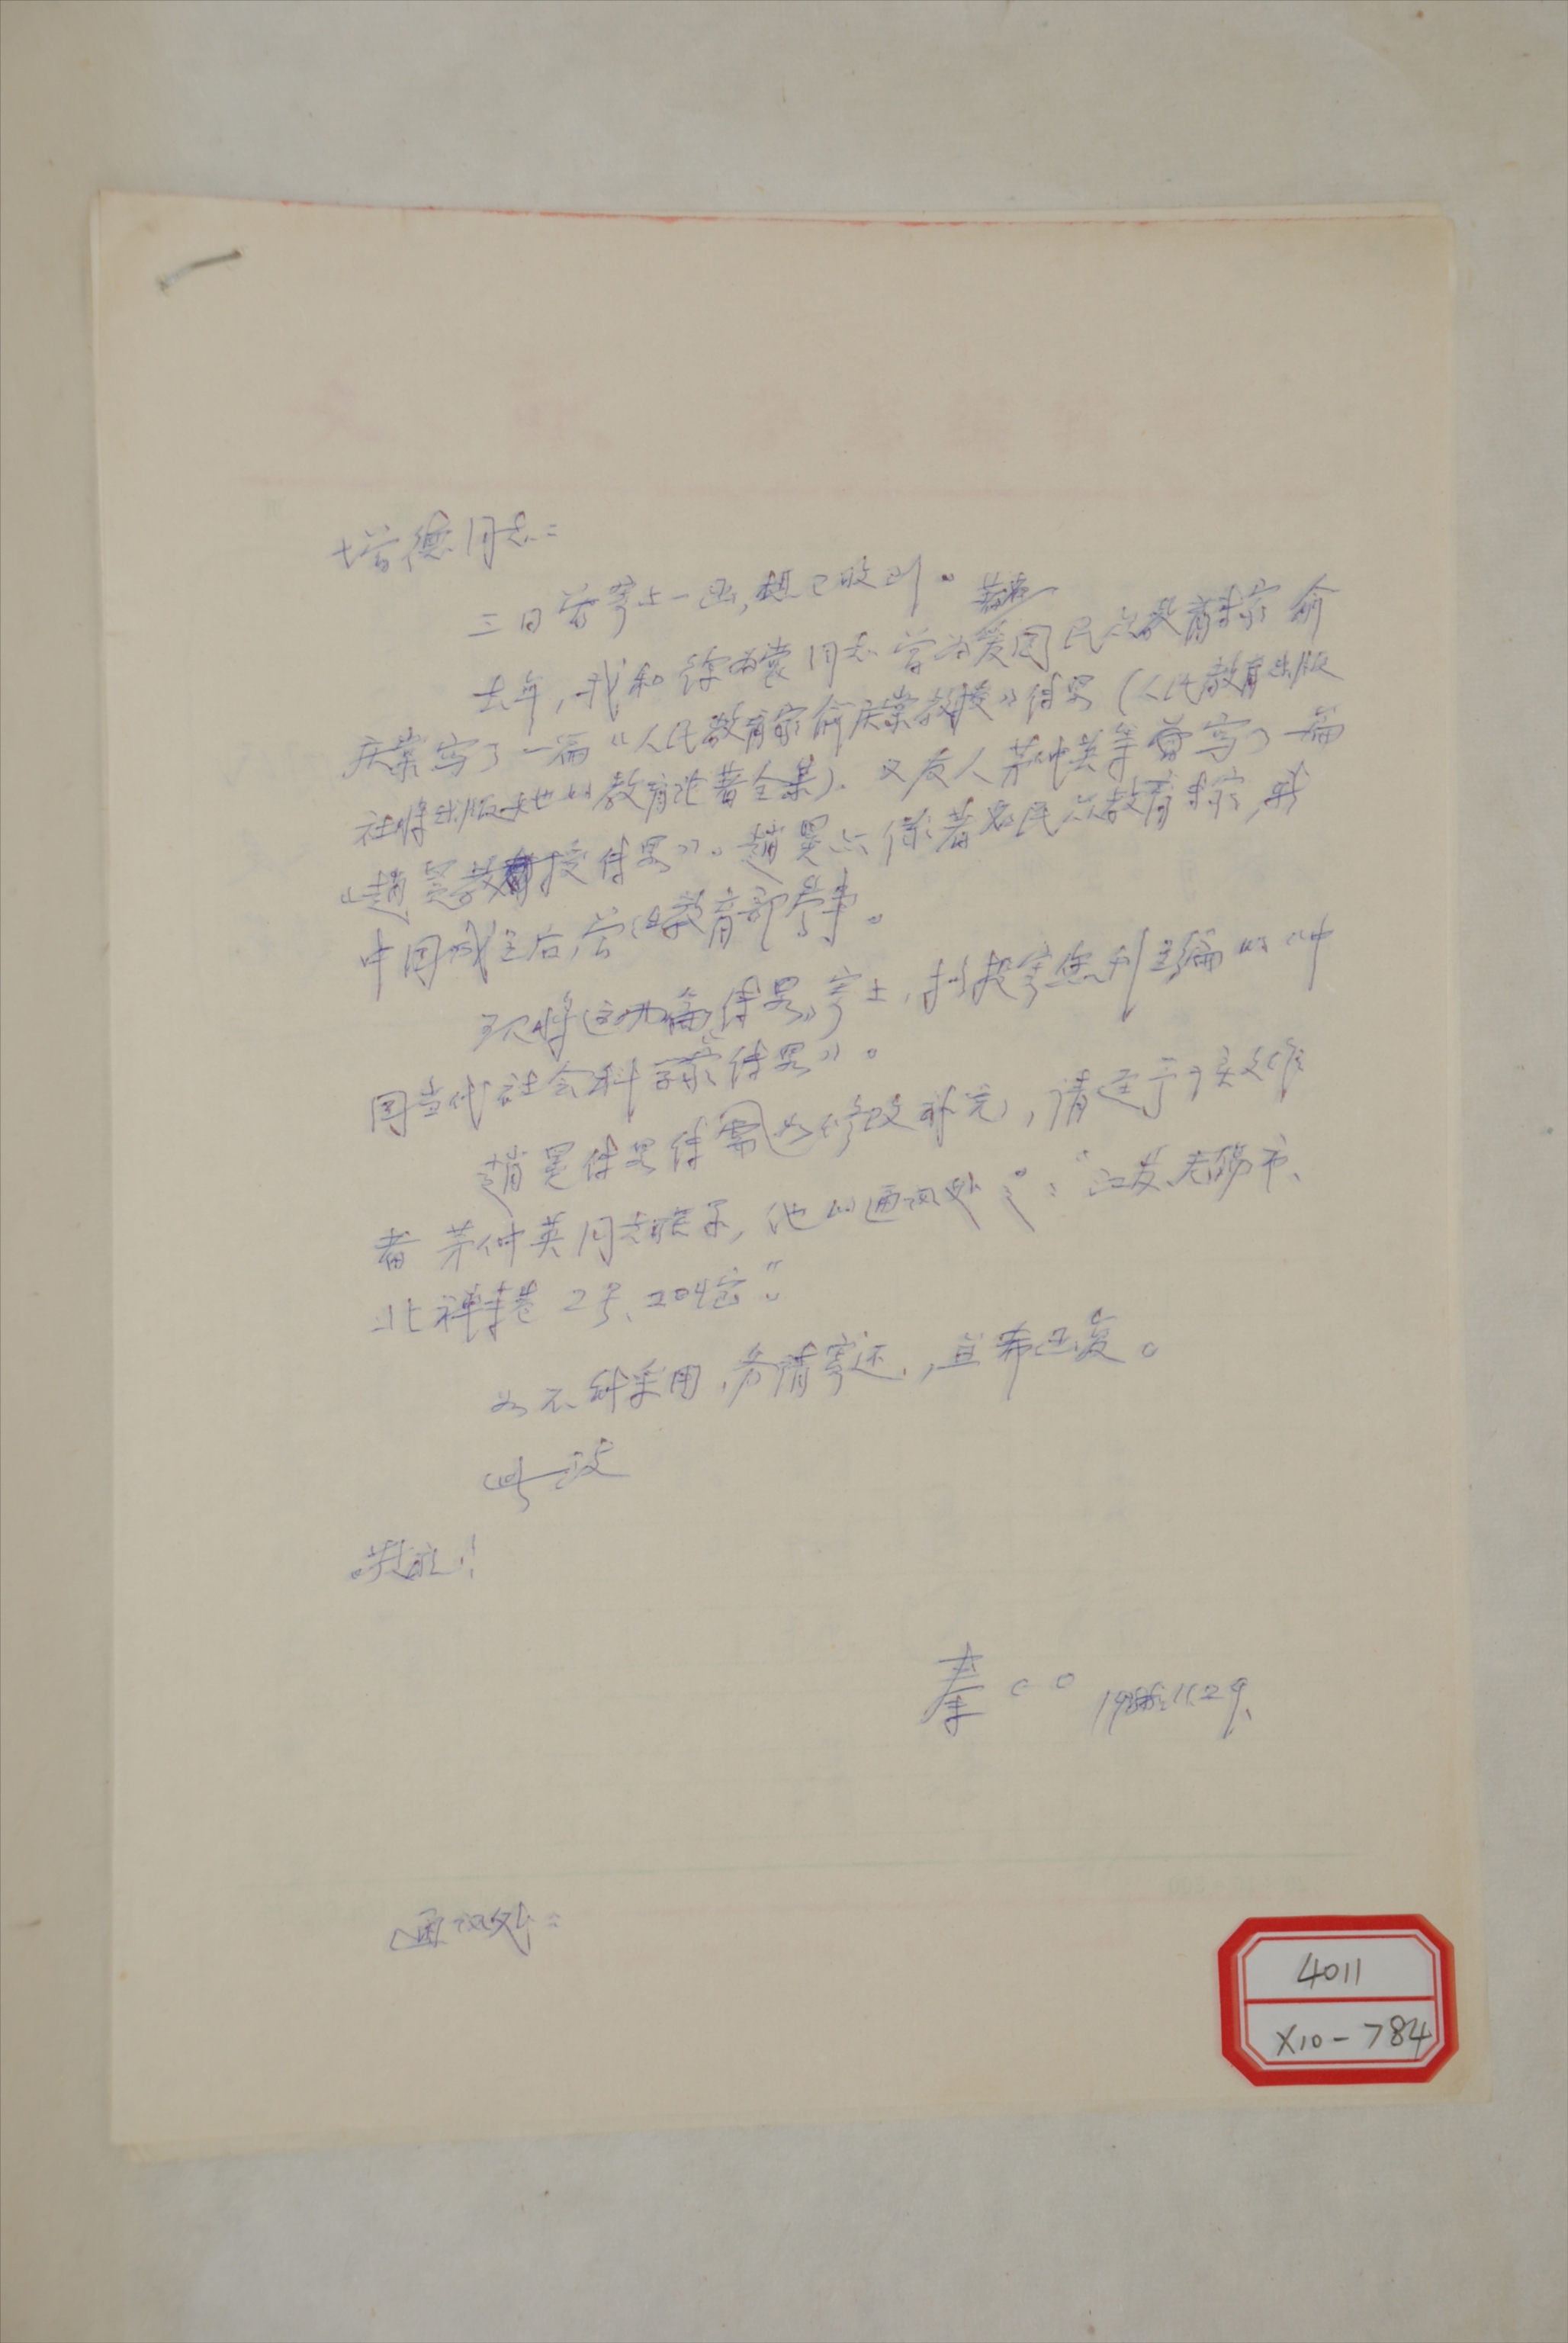 增德同志：
三日曾寄上一函，想已收到。
著名
去年，我和徐 同志曾为爱国民众教育家俞
庆棠写了一篇《人民教育家俞庆棠教授》传略（人民教育出版
社将出版她的教育论著全集）。又友人茅仲英等曾写了一篇
《赵冕教授传略》。赵冕亦系著名民众教育家，我
中国成立后，曾任教育部参事。
现将这两篇传略寄上，投寄您 主编的《中
国当代社会科学家传略》。
赵冕传略 需 修改补充，请 于 该文作
者茅仲英同志联系，他的通讯处是："江苏、无锡市、
北禅寺巷2号、204室"。
如不 采用，务请寄还，且希 复。
此致
敬礼！
秦 1986.11.29.
通讯处：
4011
X10-784